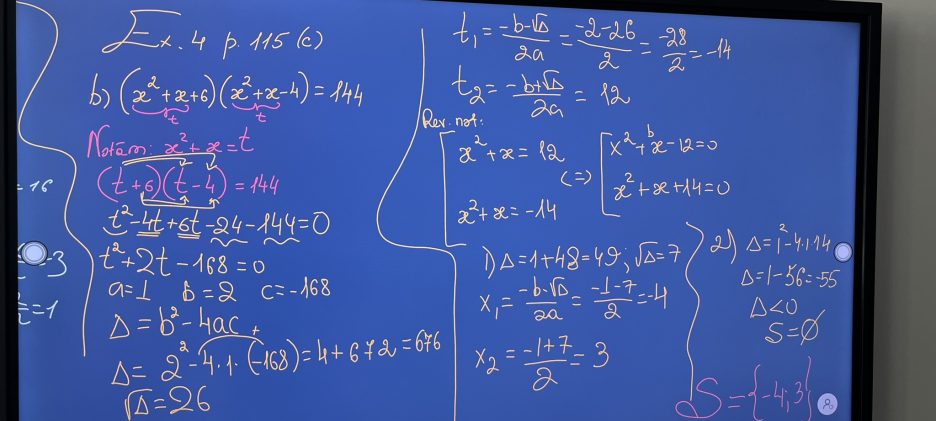 = 16
-3
= 1
Ex. 4 p. 115 (c)
b) (x² + x + 6)(x² + x - 4) = 144
t t
Notăm: x² + x = t
(t + 6)(t - 4) = 144
t² - 4t + 6t - 24 - 144 = 0
t² + 2t - 168 = 0
a = 1 b = 2 c = -168
Δ = b² - 4ac
+
Δ = 2² - 4·1·(-168) = 4 + 672 = 676
√Δ = 26
t₁ = (-b-√Δ)/2a = (-2-26)/2 = -28/2 = -14
t₂ = (-b+√Δ)/2a = 12
Rev. not:
[ x² + x = 12
x² + x = -14
(=)
[ x² + x - 12 = 0
b
x² + x + 14 = 0
1) Δ = 1 + 48 = 49; √Δ = 7
x₁ = (-b-√Δ)/2a = (-1-7)/2 = -4
x₂ = (-1+7)/2 = 3
2) Δ = 1² - 4·1·14
Δ = 1 - 56 = -55
Δ < 0
S = ∅
S = {-4; 3}